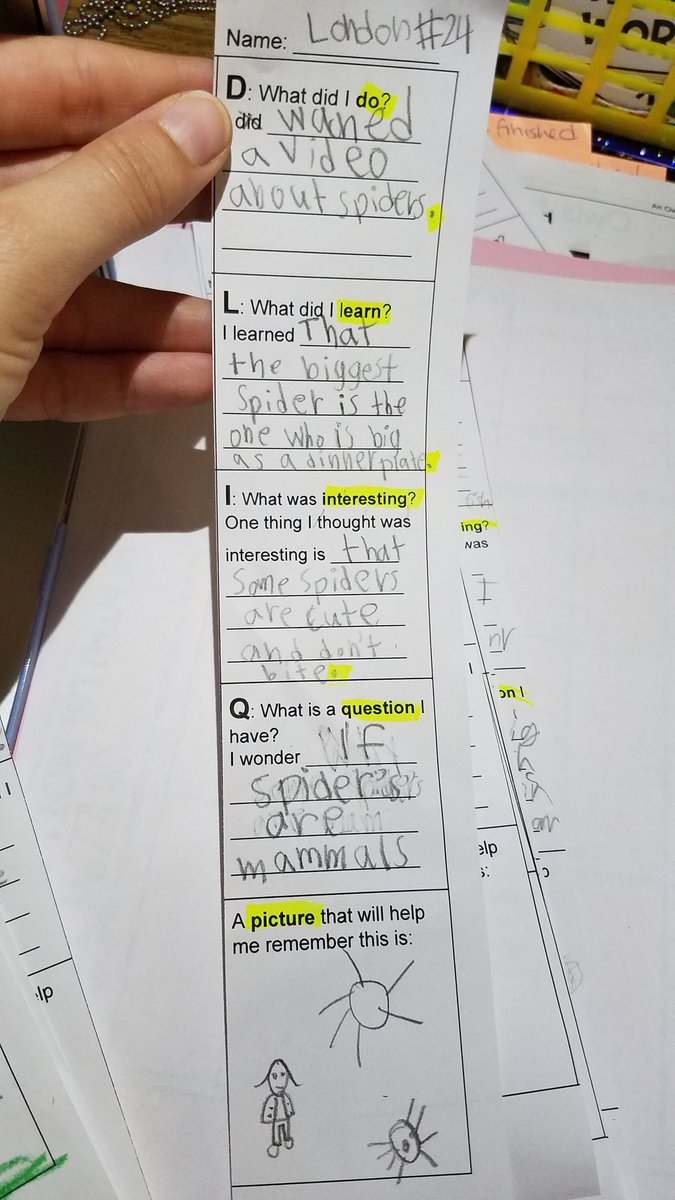 Name: London #24
D: What did I do?
did waned
a video
about spiders.
L: What did I learn?
I learned That
the biggest
Spider is the
one who is big
as a dinner plate.
I: What was interesting?
One thing I thought was
interesting is that
Some spiders
are cute
and don't
bite.
Q: What is a question I
have?
I wonder If
spider's
are
mammals
A picture that will help
me remember this is:
finished
ing?
was
on I
elp
s:
elp